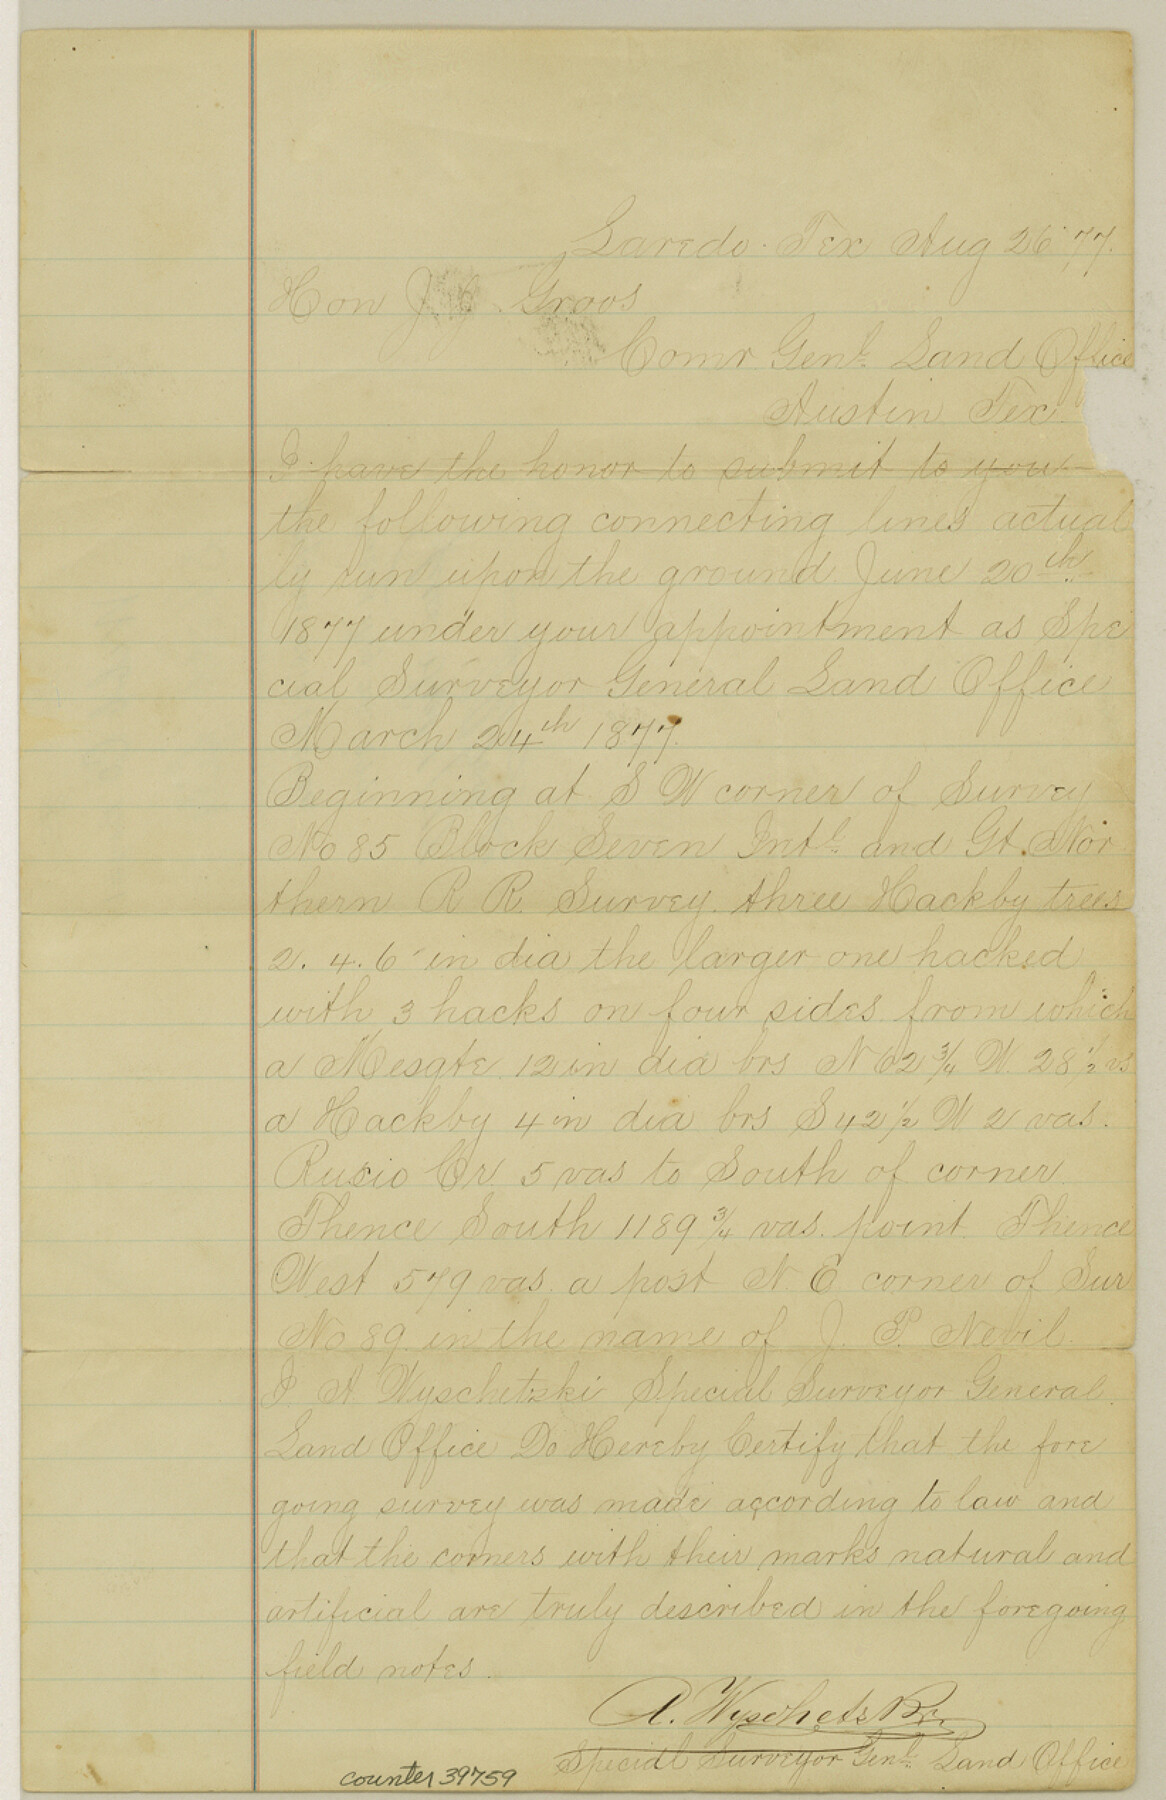 Laredo. Tex Aug 26 '77.
Hon J. J. Groos
Comr Genl. Land Office
Austin Tex
I have the honor to submit to you
the following connecting lines actual
ly run upon the ground June 20th
1877 under your appointment as Spe
cial Surveyor General Land Office
March 24th 1877.
Beginning at S W corner of Survey
No 85 Block Seven Intl. and Gt. Nor
thern R R. Survey. three Hackby trees
2. 4. 6 in dia the larger one hacked
with 3 hacks on four sides from which
a Mesqte 12 in dia brs N 62 3/4 W. 28 1/2 vs
a Hackby 4 in dia brs S 42 1/2 W 2 vas.
Rucio Cr. 5 vas to South of corner
Thence South 1189 3/4 vas. point. Thence
West 579 vas. a post N. E corner of Sur
No 89 in the name of J. P. Nevil.
I A Wyschetzki Special Surveyor General
Land Office Do Hereby Certify that the fore
going survey was made according to law and
that the corners with their marks natural and
artificial are truly described in the foregoing
field notes.
A. Wyschetzki
Special Surveyor Genl. Land Office
counter 39759